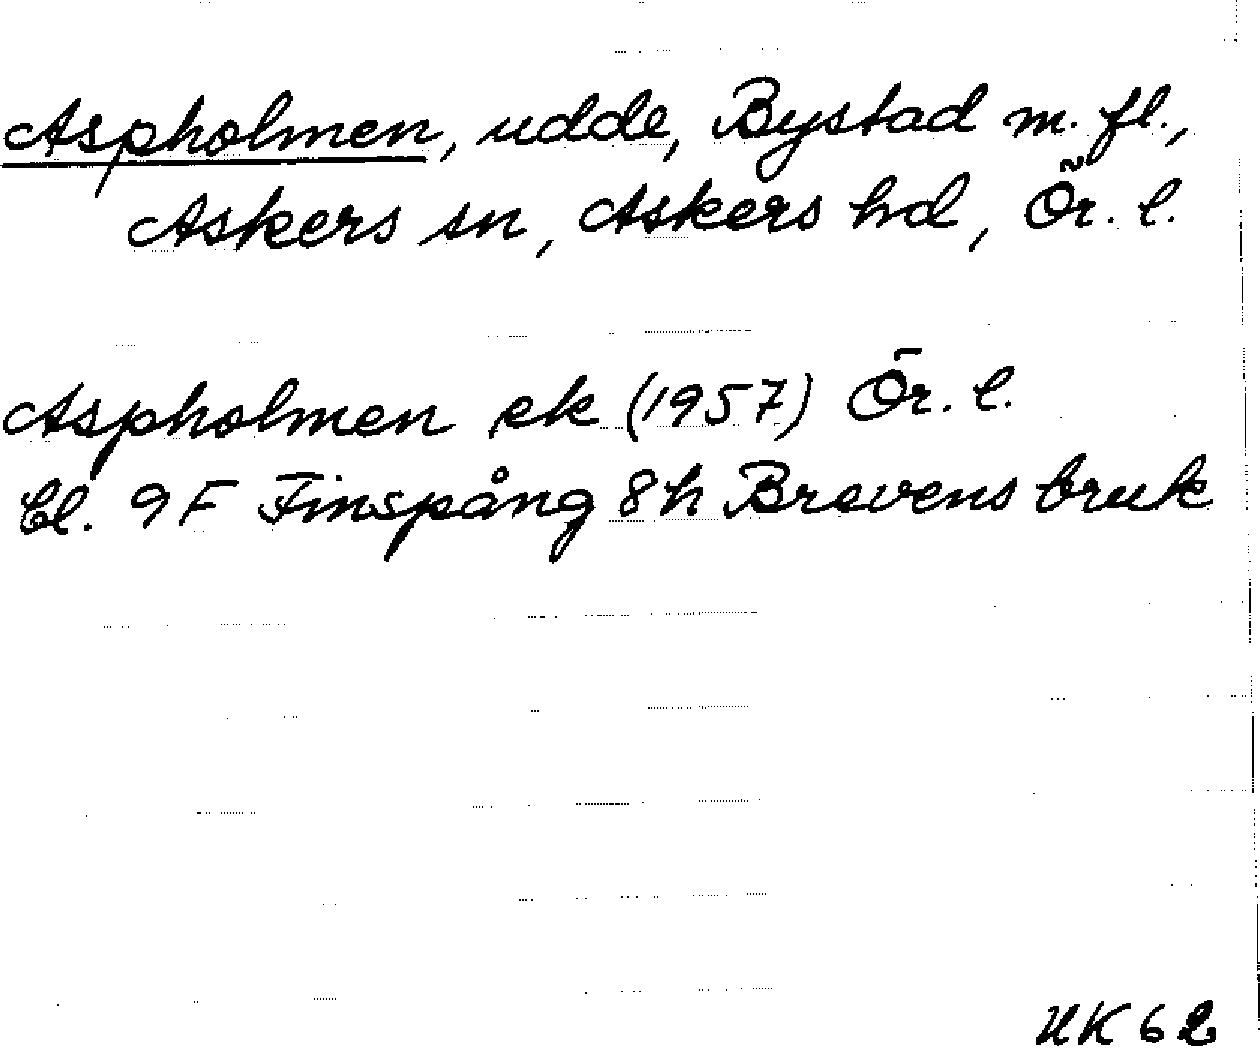 Aspholmen, udde, Bystad m. fl.,
Askers sn, Askers hd, Ör. l.
Aspholmen ek (1957) Ör. l.
bl. 9F Finspång 8h Brevens bruk
HK 62